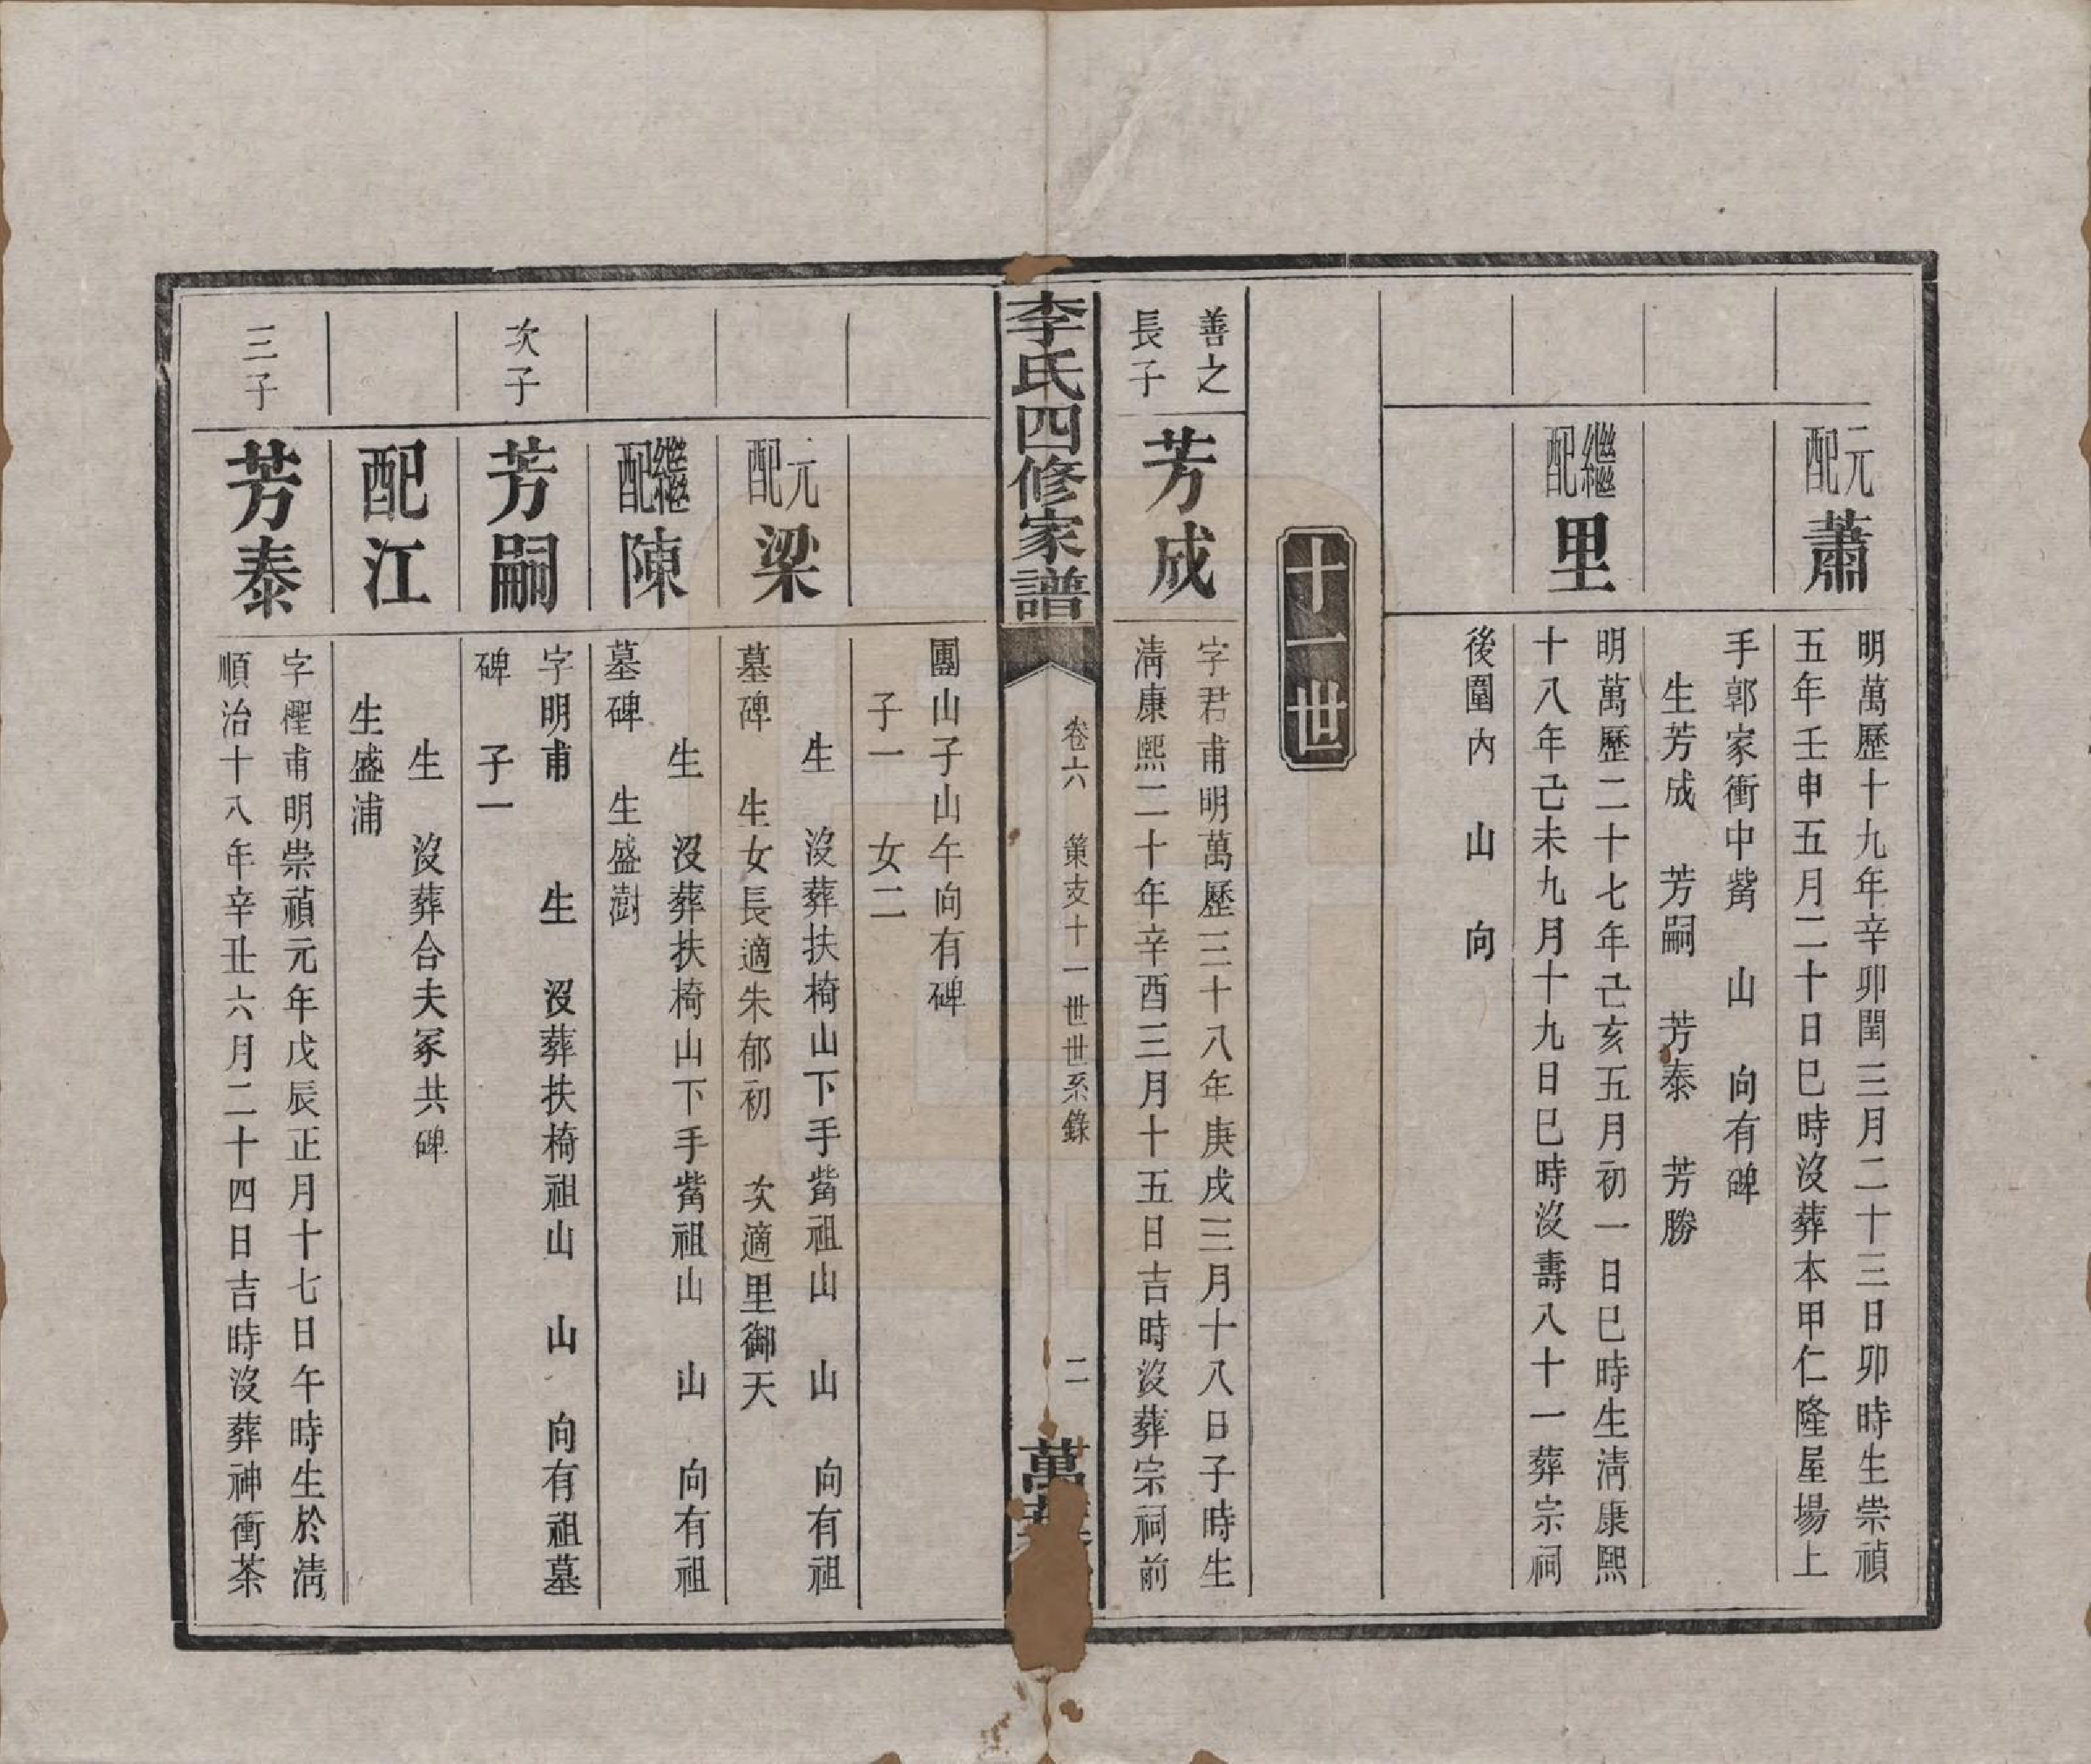 元配蕭
明萬歷十九年辛卯閏三月二十三日卯時生崇禎
五年壬申五月二十日巳時沒葬本甲仁隆屋場上
手郭家衝中觜　山　向有碑
生芳成　芳嗣　芳泰　芳勝
繼配里
明萬歷二十七年己亥五月初一日巳時生淸康熙
十八年己未九月十九日巳時沒壽八十一葬宗祠
後圍內　山　向
十一世
善之
長子
芳成
字君甫明萬歷三十八年庚戌三月十八日子時生
淸康熙二十年辛酉三月十五日吉時沒葬宗祠前
李氏四修家譜
卷六　策支十一世世系錄
二
萬
團山子山午向有碑
子一　女二
元配梁
生　沒葬扶椅山下手觜祖山　山　向有祖
墓碑　生女長適朱郁初　次適里御天
繼配陳
生　沒葬扶椅山下手觜祖山　山　向有祖
墓碑　生盛澍
次子
芳嗣
字明甫　生　沒葬扶椅祖山　山　向有祖墓
碑　子一
配江
生　沒葬合夫冢共碑
生盛浦
三子
芳泰
字樫甫明崇禎元年戊辰正月十七日午時生於淸
順治十八年辛丑六月二十四日吉時沒葬神衝茶